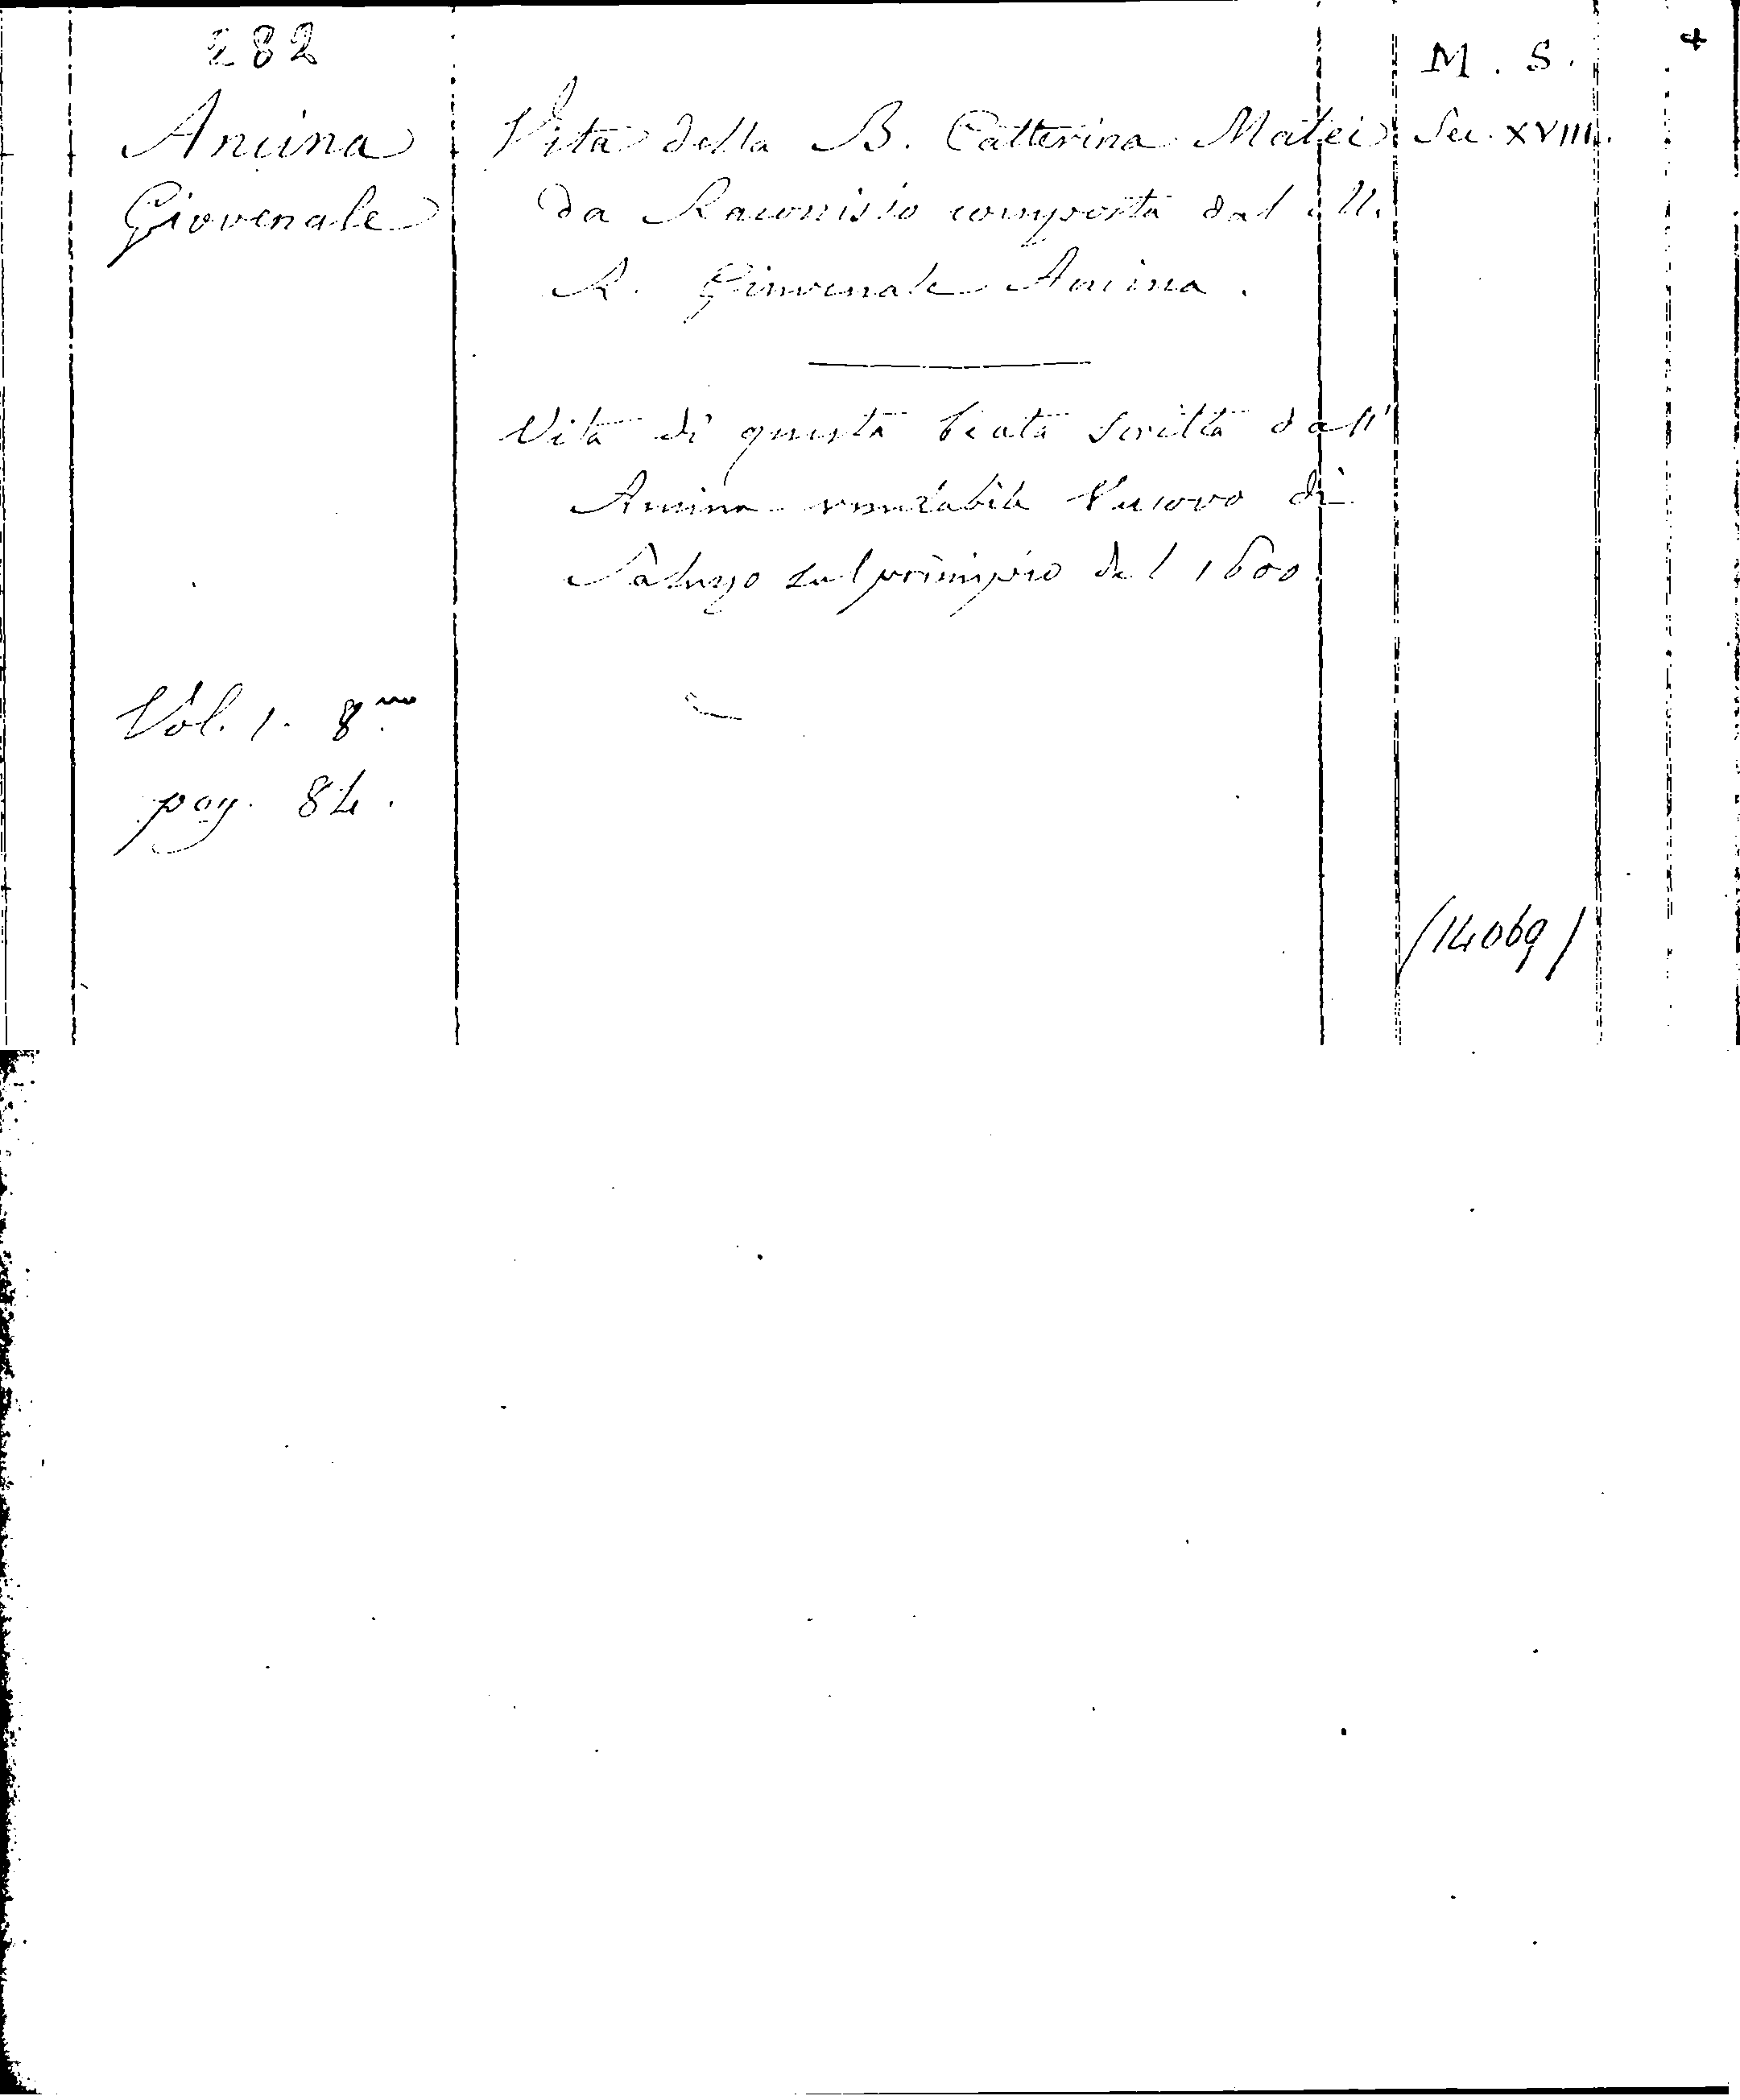 282
M. S.
4
Ancina
Giovenale
Vita della B. Catterina Matei
da Raconisio composta dal M.
R. Giovenale Ancina.
Sec. XVIII.
Vita di questa beata scritta dall'
Ancina venerabile Vescovo di
Saluzzo sul principio del 1600
Vol. 1. 8.vo
pag. 84.
(14069)